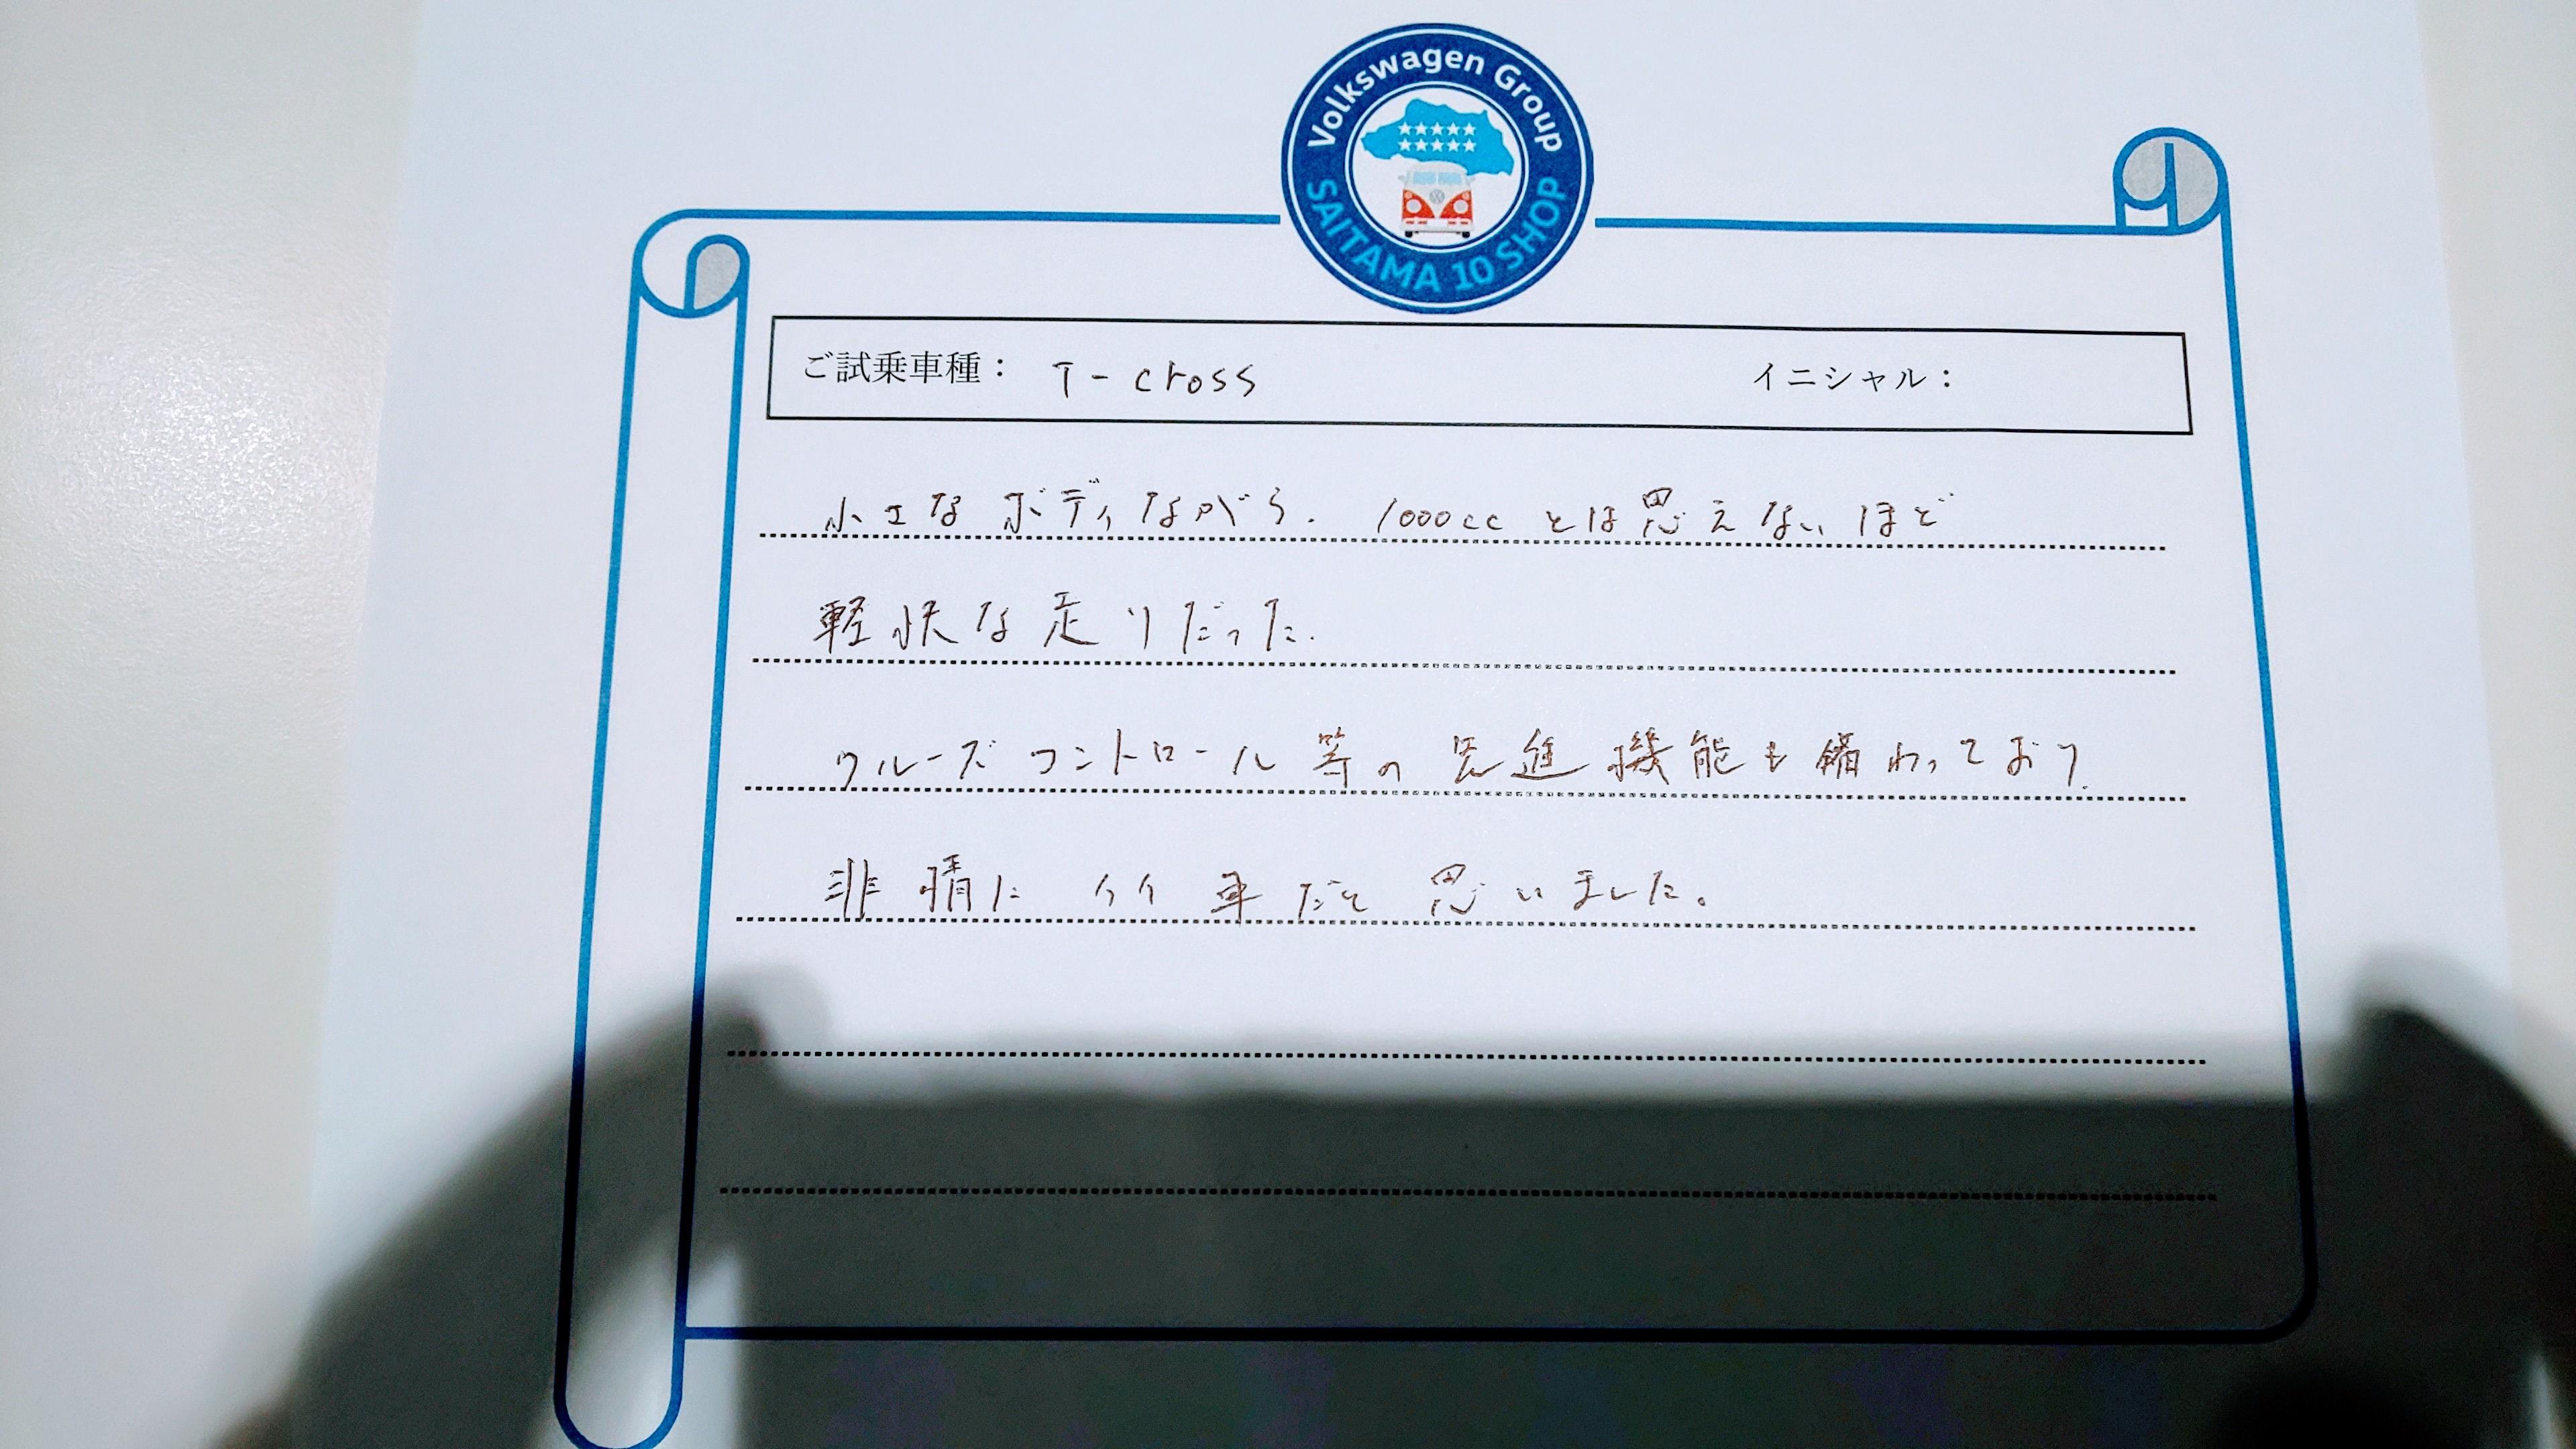 Volkswagen Group
SAITAMA 10 SHOP
ご試乗車種： T-cross イニシャル：
小さなボディながら、1000ccとは思えないほど
軽快な走りだった。
クルーズコントロール等の先進機能も備わっており、
非常にイイ車だと思いました。